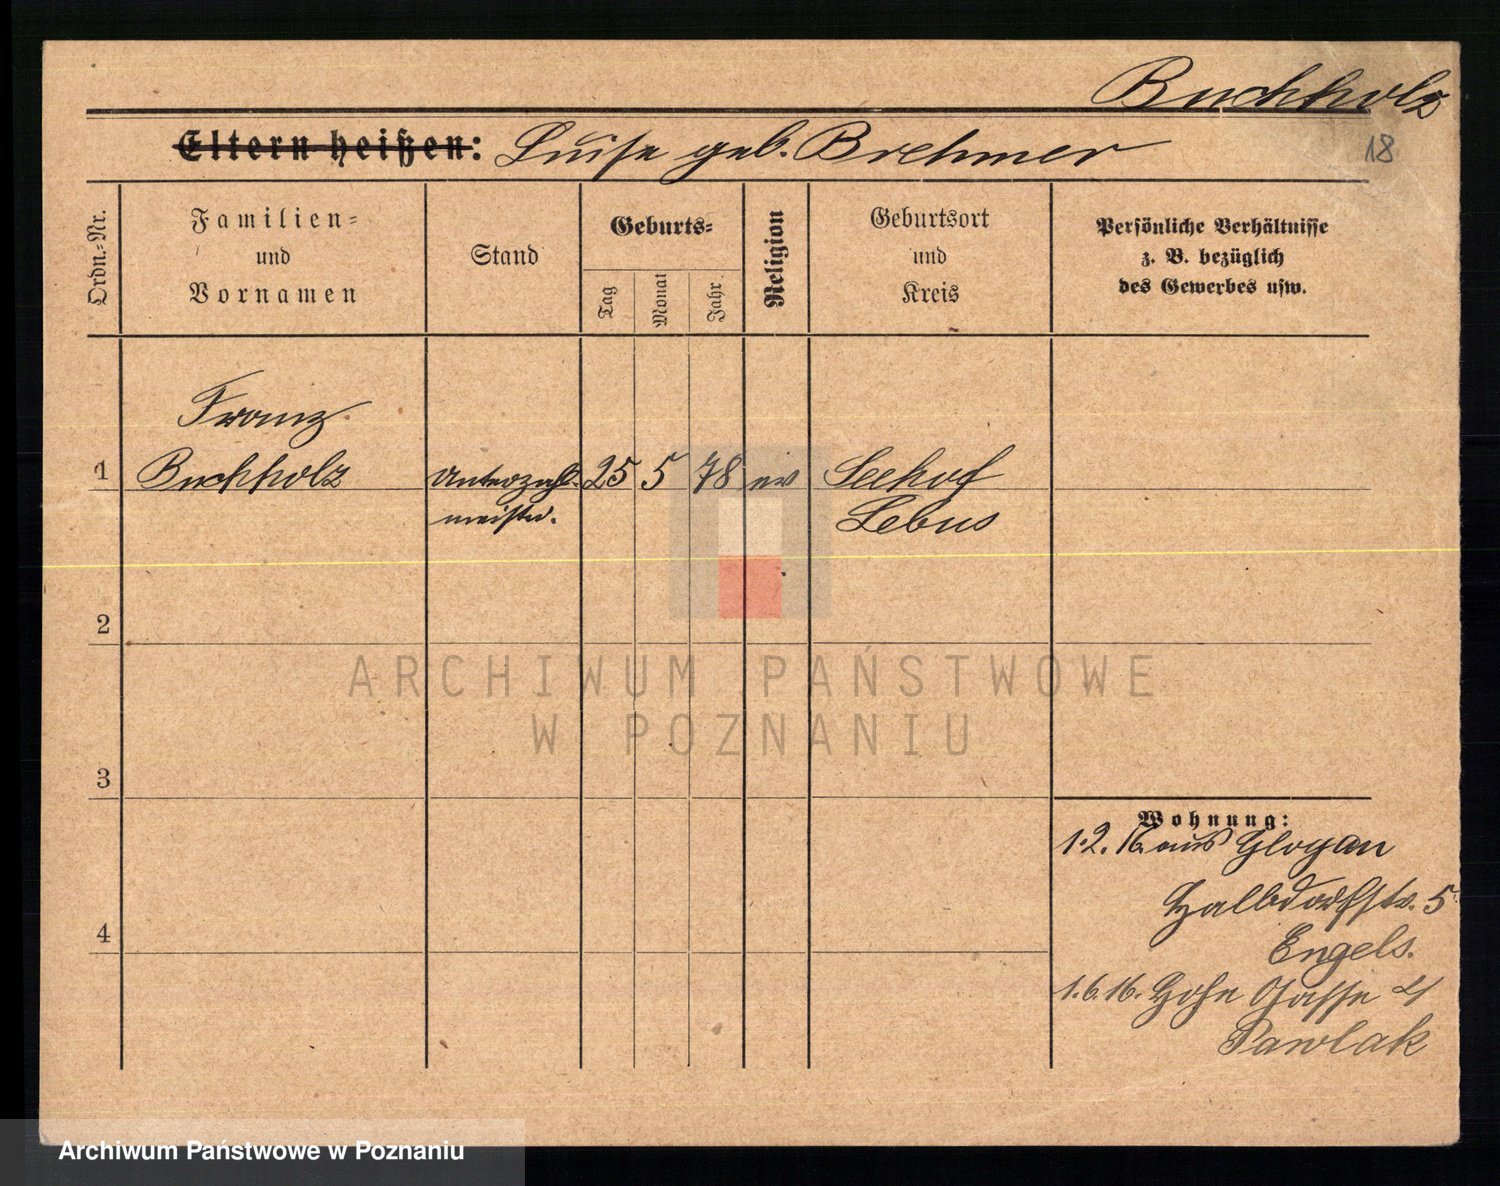 Buchholz
18
Eltern heißen: Luise geb. Brehmer
Ordn.-Nr.
Familien-
und
Vornamen
Stand
Geburts-
Tag
Monat
Jahr.
Religion
Geburtsort
und
Kreis
Persönliche Verhältnisse
z. B. bezüglich
des Gewerbes usw.
Franz
1 Buchholz Unterzahl- 25 5 78 ev Seehof
meister. Lebus
2
ARCHIWUM PAŃSTWOWE
W POZNANIU
3
Wohnung:
1.2.16. aus Glogau
Halbdorfstr. 5
4
Engels.
1.6.16. Hohe Gasse 4
Pawlak
Archiwum Państwowe w Poznaniu